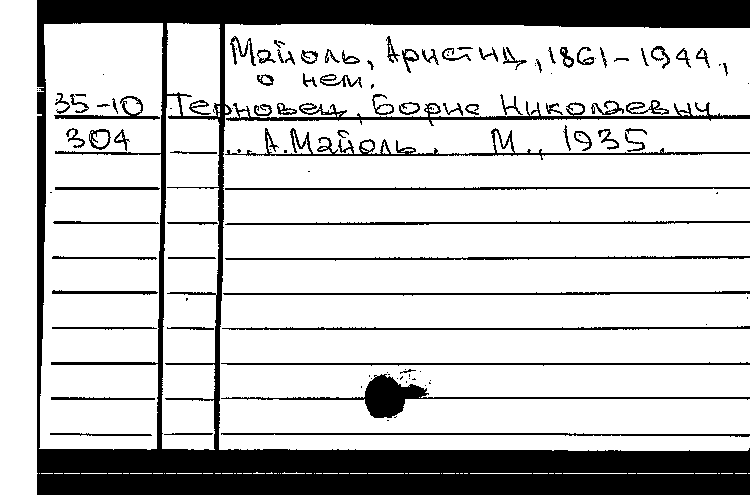 Майоль, Аристид, 1861-1944,
о нем.
35-10 Терновец, Борис Николаевич
304 ... А.Майоль. М., 1935.